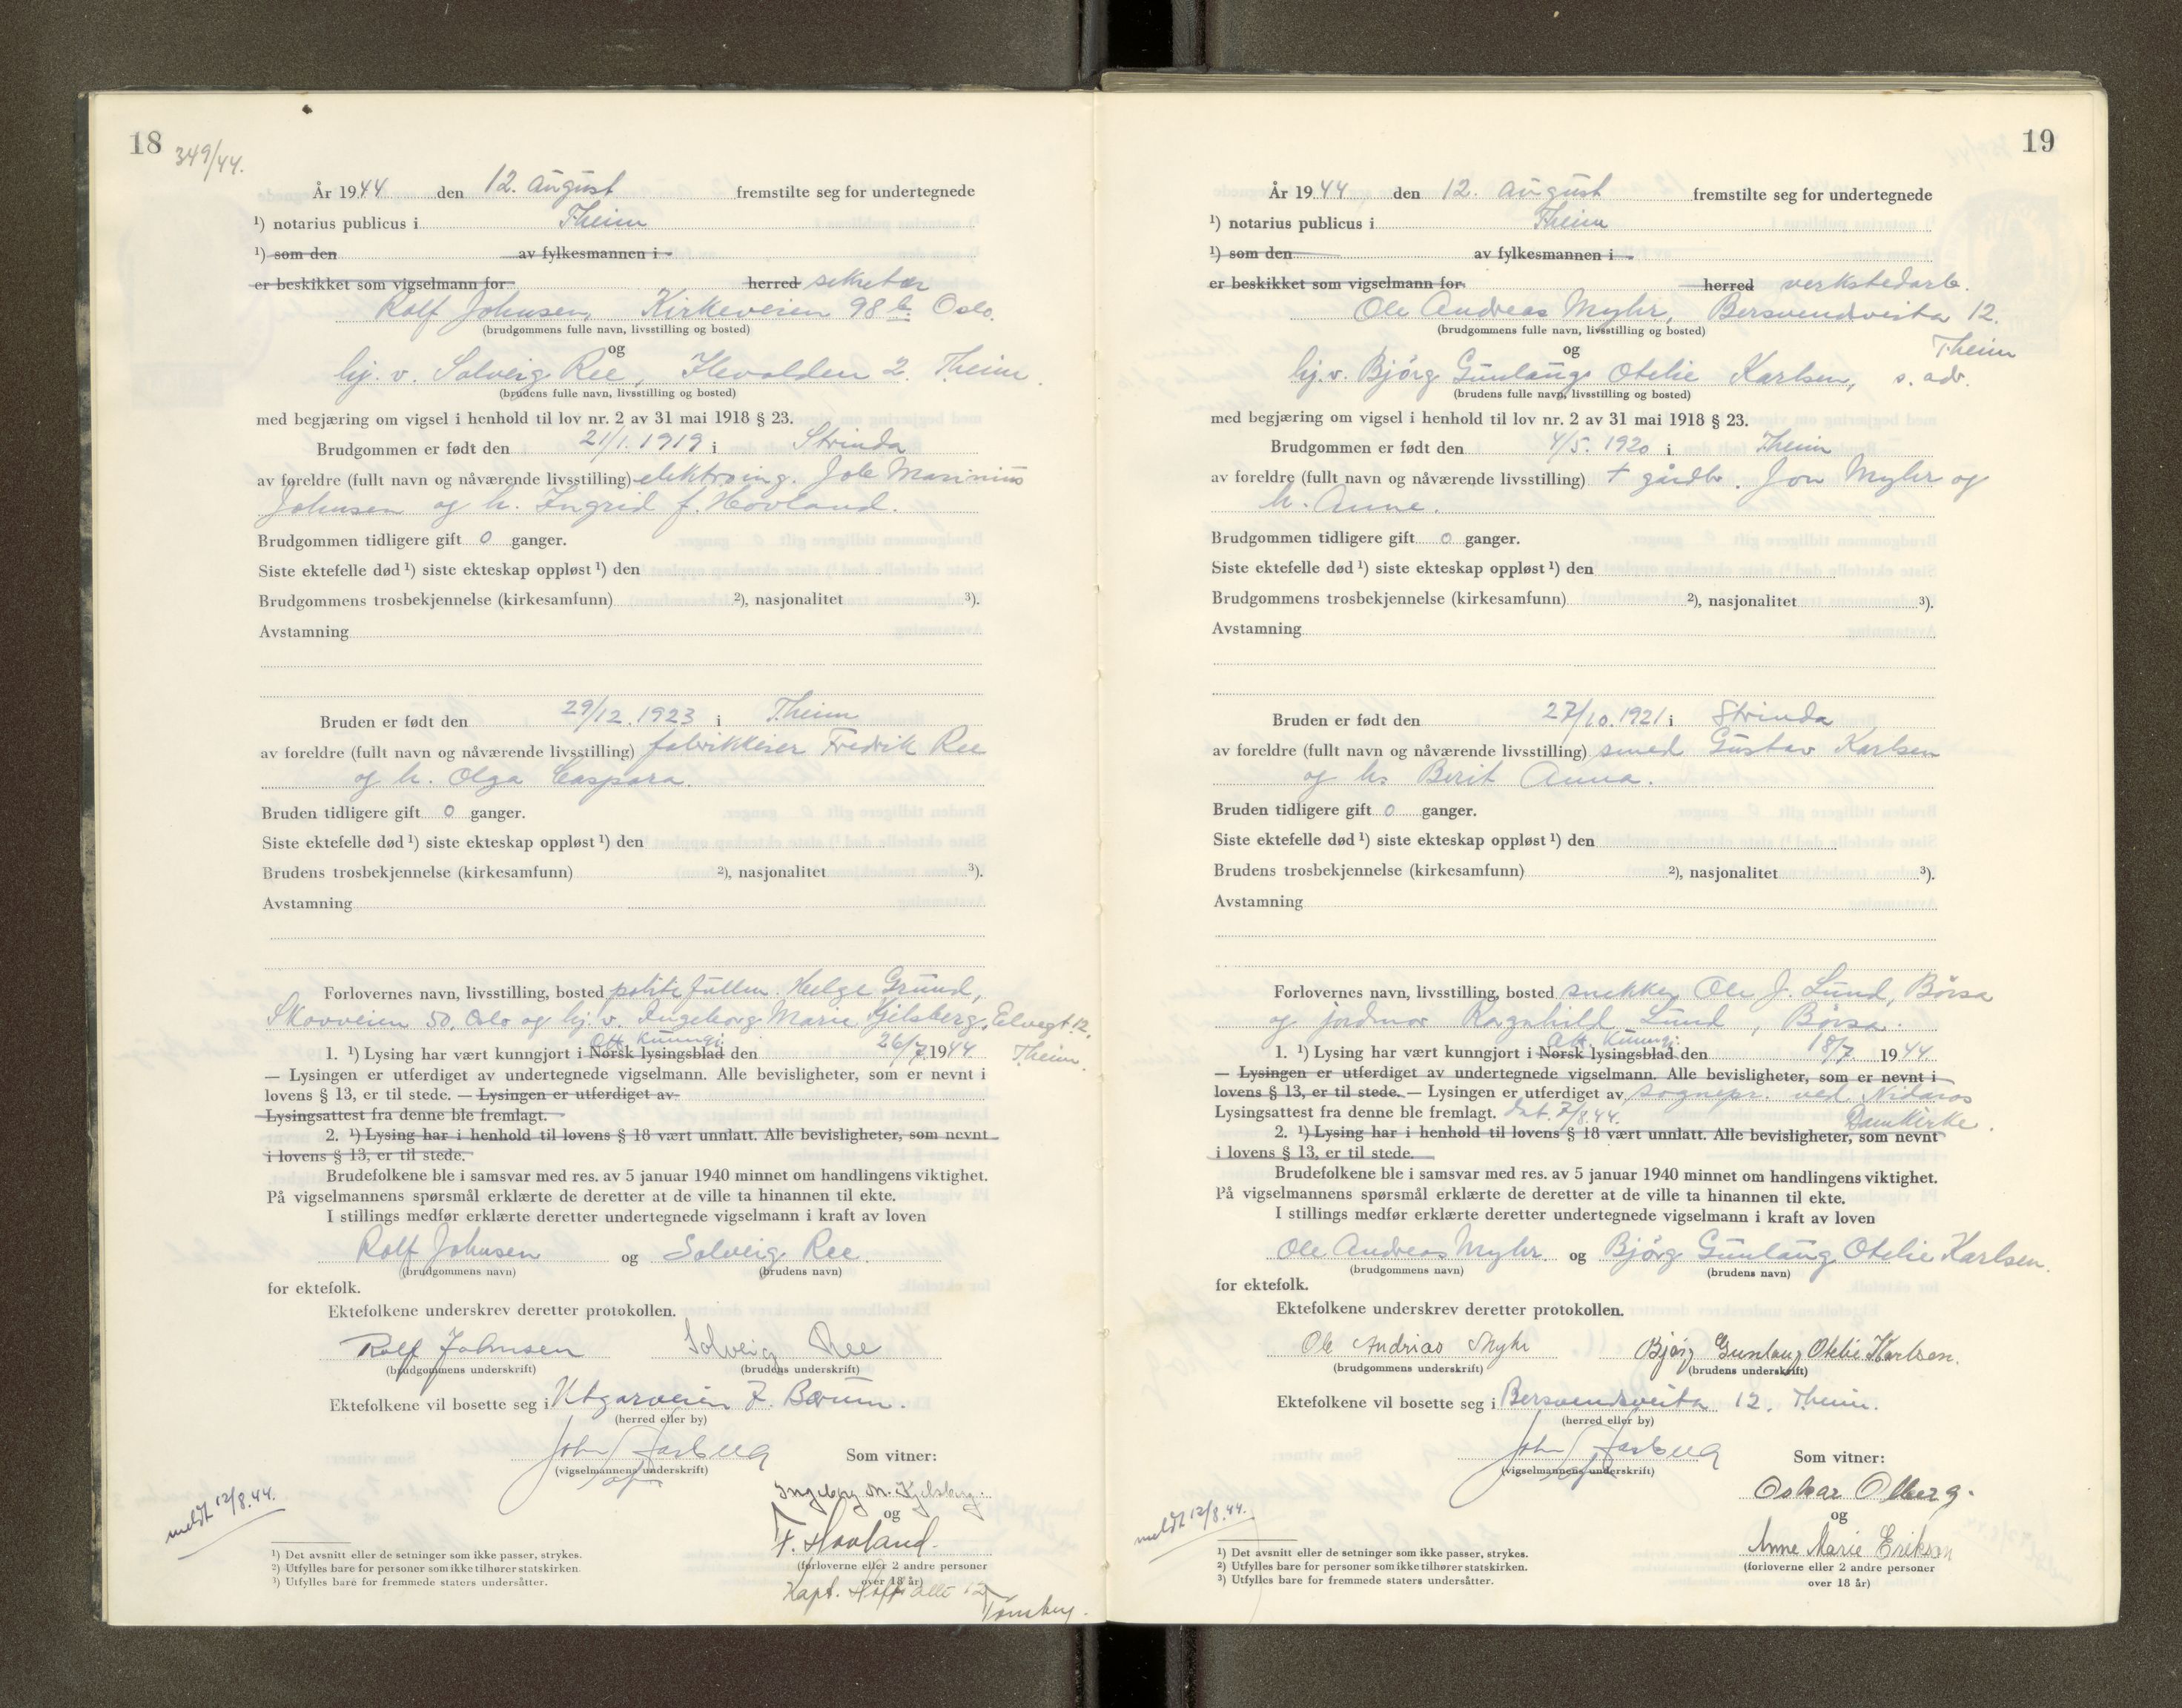 18
349/44.
År 1944 den 12. august fremstilte seg for undertegnede
¹) notarius publicus i Theim
¹) som den av fylkesmannen i
er beskikket som vigselmann for herred sekretær
Rolf Johnsen, Kirkeveien 98 b. Oslo.
(brudgommens fulle navn, livsstilling og bosted)
og
hj. v. Solveig Ree, Ilevolden 2. Theim.
(brudens fulle navn, livsstilling og bosted)
med begjæring om vigsel i henhold til lov nr. 2 av 31 mai 1918 § 23.
Brudgommen er født den 21/1. 1919 i Strinda
av foreldre (fullt navn og nåværende livsstilling) elektroing. Marinius
Johnsen og h. Ingrid f. Hovland.
Brudgommen tidligere gift 0 ganger.
Siste ektefelle død ¹) siste ekteskap oppløst ¹) den
Brudgommens trosbekjennelse (kirkesamfunn) ²), nasjonalitet ³).
Avstamning
Bruden er født den 29/12. 1923 i Theim
av foreldre (fullt navn og nåværende livsstilling) fabrikkeier Fredrik Ree
og h. Olga Caspara.
Bruden tidligere gift 0 ganger.
Siste ektefelle død ¹) siste ekteskap oppløst ¹) den
Brudens trosbekjennelse (kirkesamfunn) ²), nasjonalitet ³).
Avstamning
Forlovernes navn, livsstilling, bosted politifullm. Helge Grund,
Skovveien 50, Oslo og hj. v. Ingeborg Marie Kjelsberg, Elvegt 12,
Off. kunngj.
1. ¹) Lysing har vært kunngjort i Norsk lysingsblad den 26/7 1944 Theim.
— Lysingen er utferdiget av undertegnede vigselmann. Alle bevisligheter, som er nevnt i
lovens § 13, er til stede. — Lysingen er utferdiget av
Lysingsattest fra denne ble fremlagt.
2. ¹) Lysing har i henhold til lovens § 18 vært unnlatt. Alle bevisligheter, som nevnt
i lovens § 13, er til stede.
Brudefolkene ble i samsvar med res. av 5 januar 1940 minnet om handlingens viktighet.
På vigselmannens spørsmål erklærte de deretter at de ville ta hinannen til ekte.
I stillings medfør erklærte deretter undertegnede vigselmann i kraft av loven
Rolf Johnsen og Solveig Ree.
(brudgommens navn) (brudens navn)
for ektefolk.
Ektefolkene underskrev deretter protokollen.
Rolf Johnsen Solveig Ree
(brudgommens underskrift) (brudens underskrift)
Ektefolkene vil bosette seg i Utgarveien 7. Bærum.
(herred eller by)
John
(vigselmannens underskrift)
Som vitner:
Ingeborg M. Kjelsberg.
og
F. Hovland.
(forloverne eller 2 andre personer
over 18 år)
Kapt. Tønsberg.
meldt 12/8. 44.
¹) Det avsnitt eller de setninger som ikke passer, strykes.
²) Utfylles bare for personer som ikke tilhører statskirken.
³) Utfylles bare for fremmede staters undersåtter.
19
År 1944 den 12. august fremstilte seg for undertegnede
¹) notarius publicus i Theim
¹) som den av fylkesmannen i
er beskikket som vigselmann for herred verkstedarb.
Ole Andreas Myhr, Bersvendveita 12.
(brudgommens fulle navn, livsstilling og bosted) Theim
og
hj. v. Bjørg Gunlaug Otelie Karlsen, s. adr.
(brudens fulle navn, livsstilling og bosted)
med begjæring om vigsel i henhold til lov nr. 2 av 31 mai 1918 § 23.
Brudgommen er født den 4/5. 1920 i Theim
av foreldre (fullt navn og nåværende livsstilling) + gårdbr. Jon Myhr og
h. Anne.
Brudgommen tidligere gift 0 ganger.
Siste ektefelle død ¹) siste ekteskap oppløst ¹) den
Brudgommens trosbekjennelse (kirkesamfunn) ²), nasjonalitet ³).
Avstamning
Bruden er født den 27/10. 1921 i Strinda
av foreldre (fullt navn og nåværende livsstilling) smed Gustav Karlsen
og hs Berit Anna.
Bruden tidligere gift 0 ganger.
Siste ektefelle død ¹) siste ekteskap oppløst ¹) den
Brudens trosbekjennelse (kirkesamfunn) ²), nasjonalitet ³).
Avstamning
Forlovernes navn, livsstilling, bosted snekker Ole J. Lund, Børsa
og jordmor Ragnhild Lund, Børsa.
Off. kunngj.
1. ¹) Lysing har vært kunngjort i Norsk lysingsblad den 18/7 1944
— Lysingen er utferdiget av undertegnede vigselmann. Alle bevisligheter, som er nevnt i
lovens § 13, er til stede. — Lysingen er utferdiget av sognepr. ved Nidaros
Lysingsattest fra denne ble fremlagt. dat. 7/8.44. Domkirke.
2. ¹) Lysing har i henhold til lovens § 18 vært unnlatt. Alle bevisligheter, som nevnt
i lovens § 13, er til stede.
Brudefolkene ble i samsvar med res. av 5 januar 1940 minnet om handlingens viktighet.
På vigselmannens spørsmål erklærte de deretter at de ville ta hinannen til ekte.
I stillings medfør erklærte deretter undertegnede vigselmann i kraft av loven
Ole Andreas Myhr. og Bjørg Gunlaug Otelie Karlsen.
(brudgommens navn) (brudens navn)
for ektefolk.
Ektefolkene underskrev deretter protokollen.
Ole Andreas Myhr Bjørg Gunlaug Otelie Karlsen.
(brudgommens underskrift) (brudens underskrift)
Ektefolkene vil bosette seg i Bersvendsveita 12. Theim.
(herred eller by)
John
(vigselmannens underskrift)
Som vitner:
Oskar Olberg.
og
Anne Marie Erikson
(forloverne eller 2 andre personer
over 18 år)
meldt 12/8. 44.
¹) Det avsnitt eller de setninger som ikke passer, strykes.
²) Utfylles bare for personer som ikke tilhører statskirken.
³) Utfylles bare for fremmede staters undersåtter.